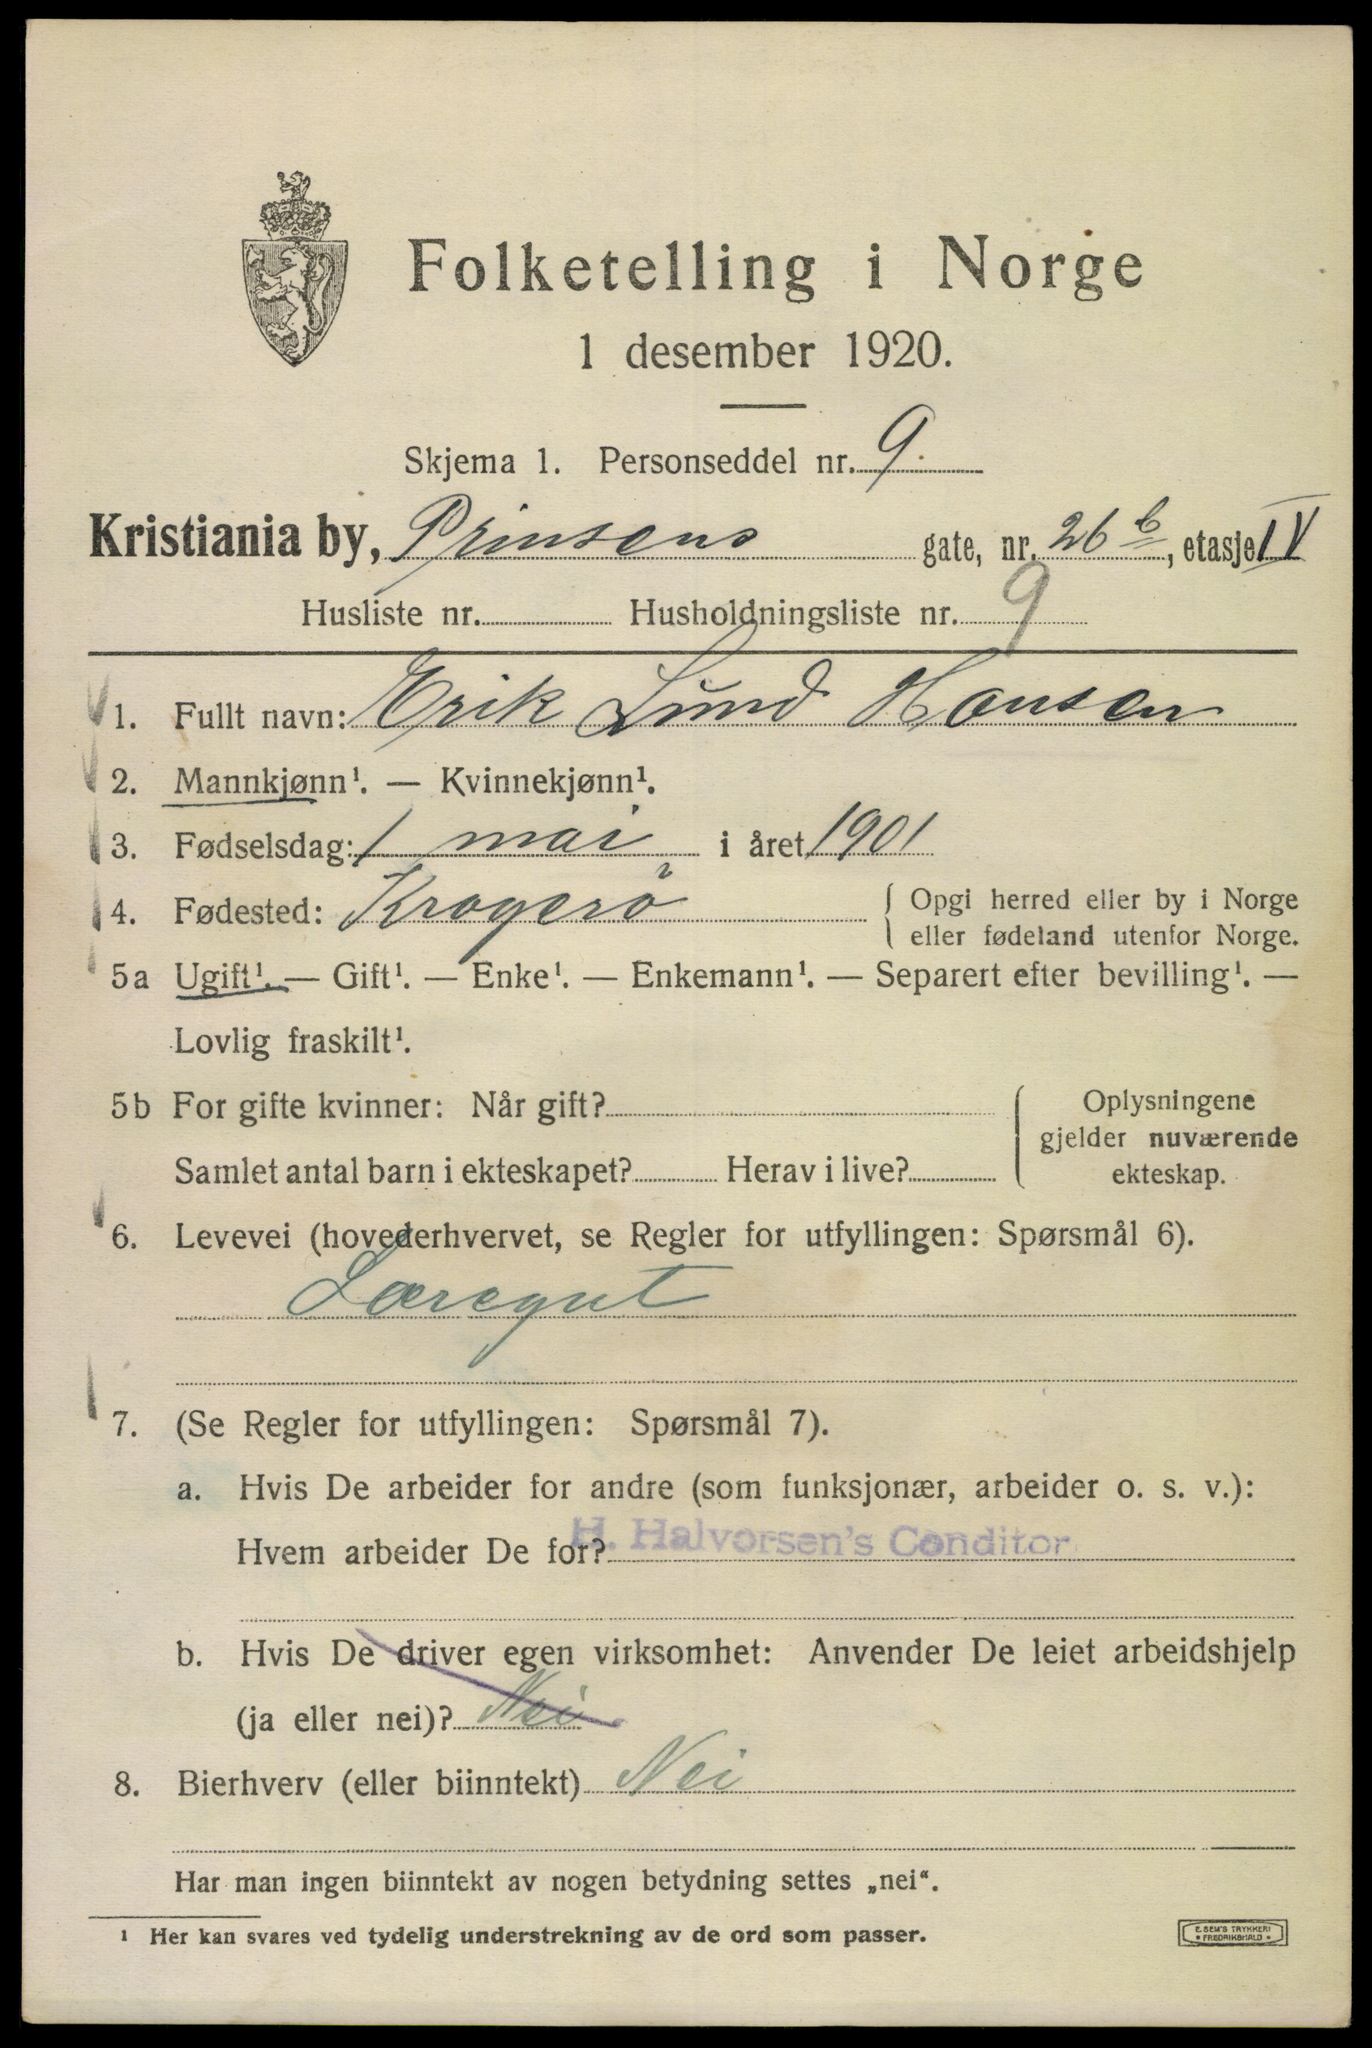 Folketelling i Norge
1 desember 1920.
Skjema 1. Personseddel nr. 9.
Kristiania by, Prinsens gate, nr. 26 b, etasje IV
Husliste nr. Husholdningsliste nr. 9
1. Fullt navn: Erik Lund Hansen
2. Mannkjønn¹. — Kvinnekjønn¹.
3. Fødselsdag: 1 mai i året 1901
4. Fødested: Kragerö { Opgi herred eller by i Norge
eller fødeland utenfor Norge.
5a Ugift¹. — Gift¹. — Enke¹. — Enkemann¹. — Separert efter bevilling¹. —
Lovlig fraskilt¹.
5b For gifte kvinner: Når gift? { Oplysningene
gjelder nuværende
Samlet antal barn i ekteskapet? Herav i live? ekteskap.
6. Levevei (hovederhvervet, se Regler for utfyllingen: Spørsmål 6).
Læregut
7. (Se Regler for utfyllingen: Spørsmål 7).
a. Hvis De arbeider for andre (som funksjonær, arbeider o. s. v.):
Hvem arbeider De for? H. Halvorsen's Conditor
b. Hvis De driver egen virksomhet: Anvender De leiet arbeidshjelp
(ja eller nei)? Nei
8. Bierhverv (eller biinntekt) Nei
Har man ingen biinntekt av nogen betydning settes „nei“.
¹ Her kan svares ved tydelig understrekning av de ord som passer.
E. SEM'S TRYKKERI
• FREDRIKSHALD •